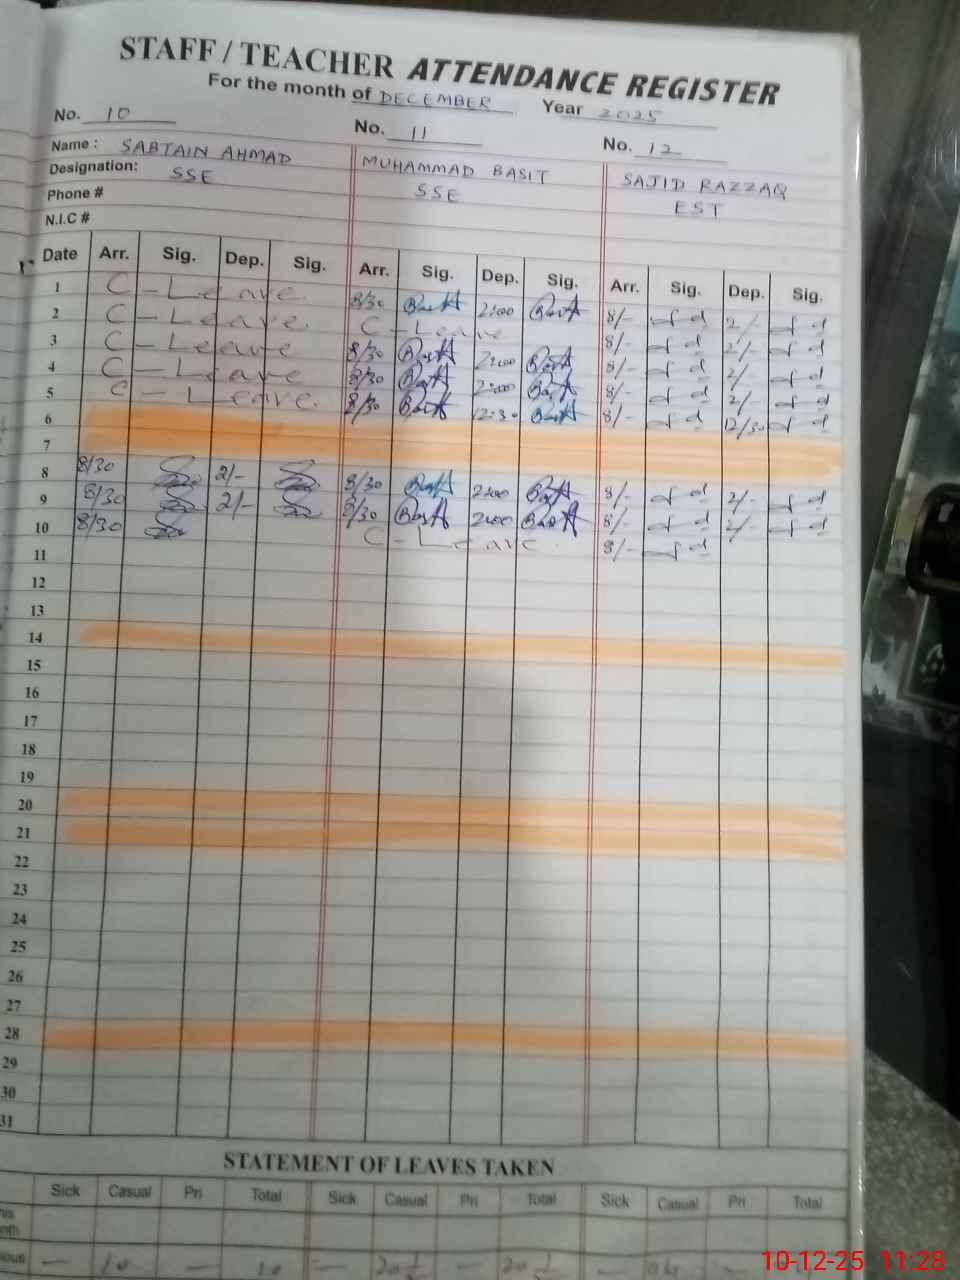 STAFF / TEACHER ATTENDANCE REGISTER
For the month of DECEMBER Year 2025
No. 10 No. 11 No. 12
Name : SABTAIN AHMAD MUHAMMAD BASIT SAJID RAZZAQ
Designation: SSE SSE EST
Phone #
N.I.C #
Date Arr. Sig. Dep. Sig. Arr. Sig. Dep. Sig. Arr. Sig. Dep. Sig.
1 C - Leave 8/30 Basit 2:00 Basit 8/- 2/-
2 C - Leave. C - Leave 8/- 2/-
3 C - Leave 8/30 Basit 2:00 Basit 8/- 2/-
4 C - Leave 8/30 Basit 2:00 Basit 8/- 2/-
5 C - Leave. 8/30 Basit 12:30 Basit 8/- 12/30
6
7
8 8/30 2/- 8/30 Basit 2:00 Basit 8/- 2/-
9 8/30 2/- 8/30 Basit 2:00 Basit 8/- 2/-
10 8/30 C - Leave. 8/-
11
12
13
14
15
16
17
18
19
20
21
22
23
24
25
26
27
28
29
30
31
STATEMENT OF LEAVES TAKEN
Sick Casual Pri Total Sick Casual Pri Total Sick Casual Pri Total
— 10 10 — 20½ — 20½ — 04 —
10-12-25 11:28